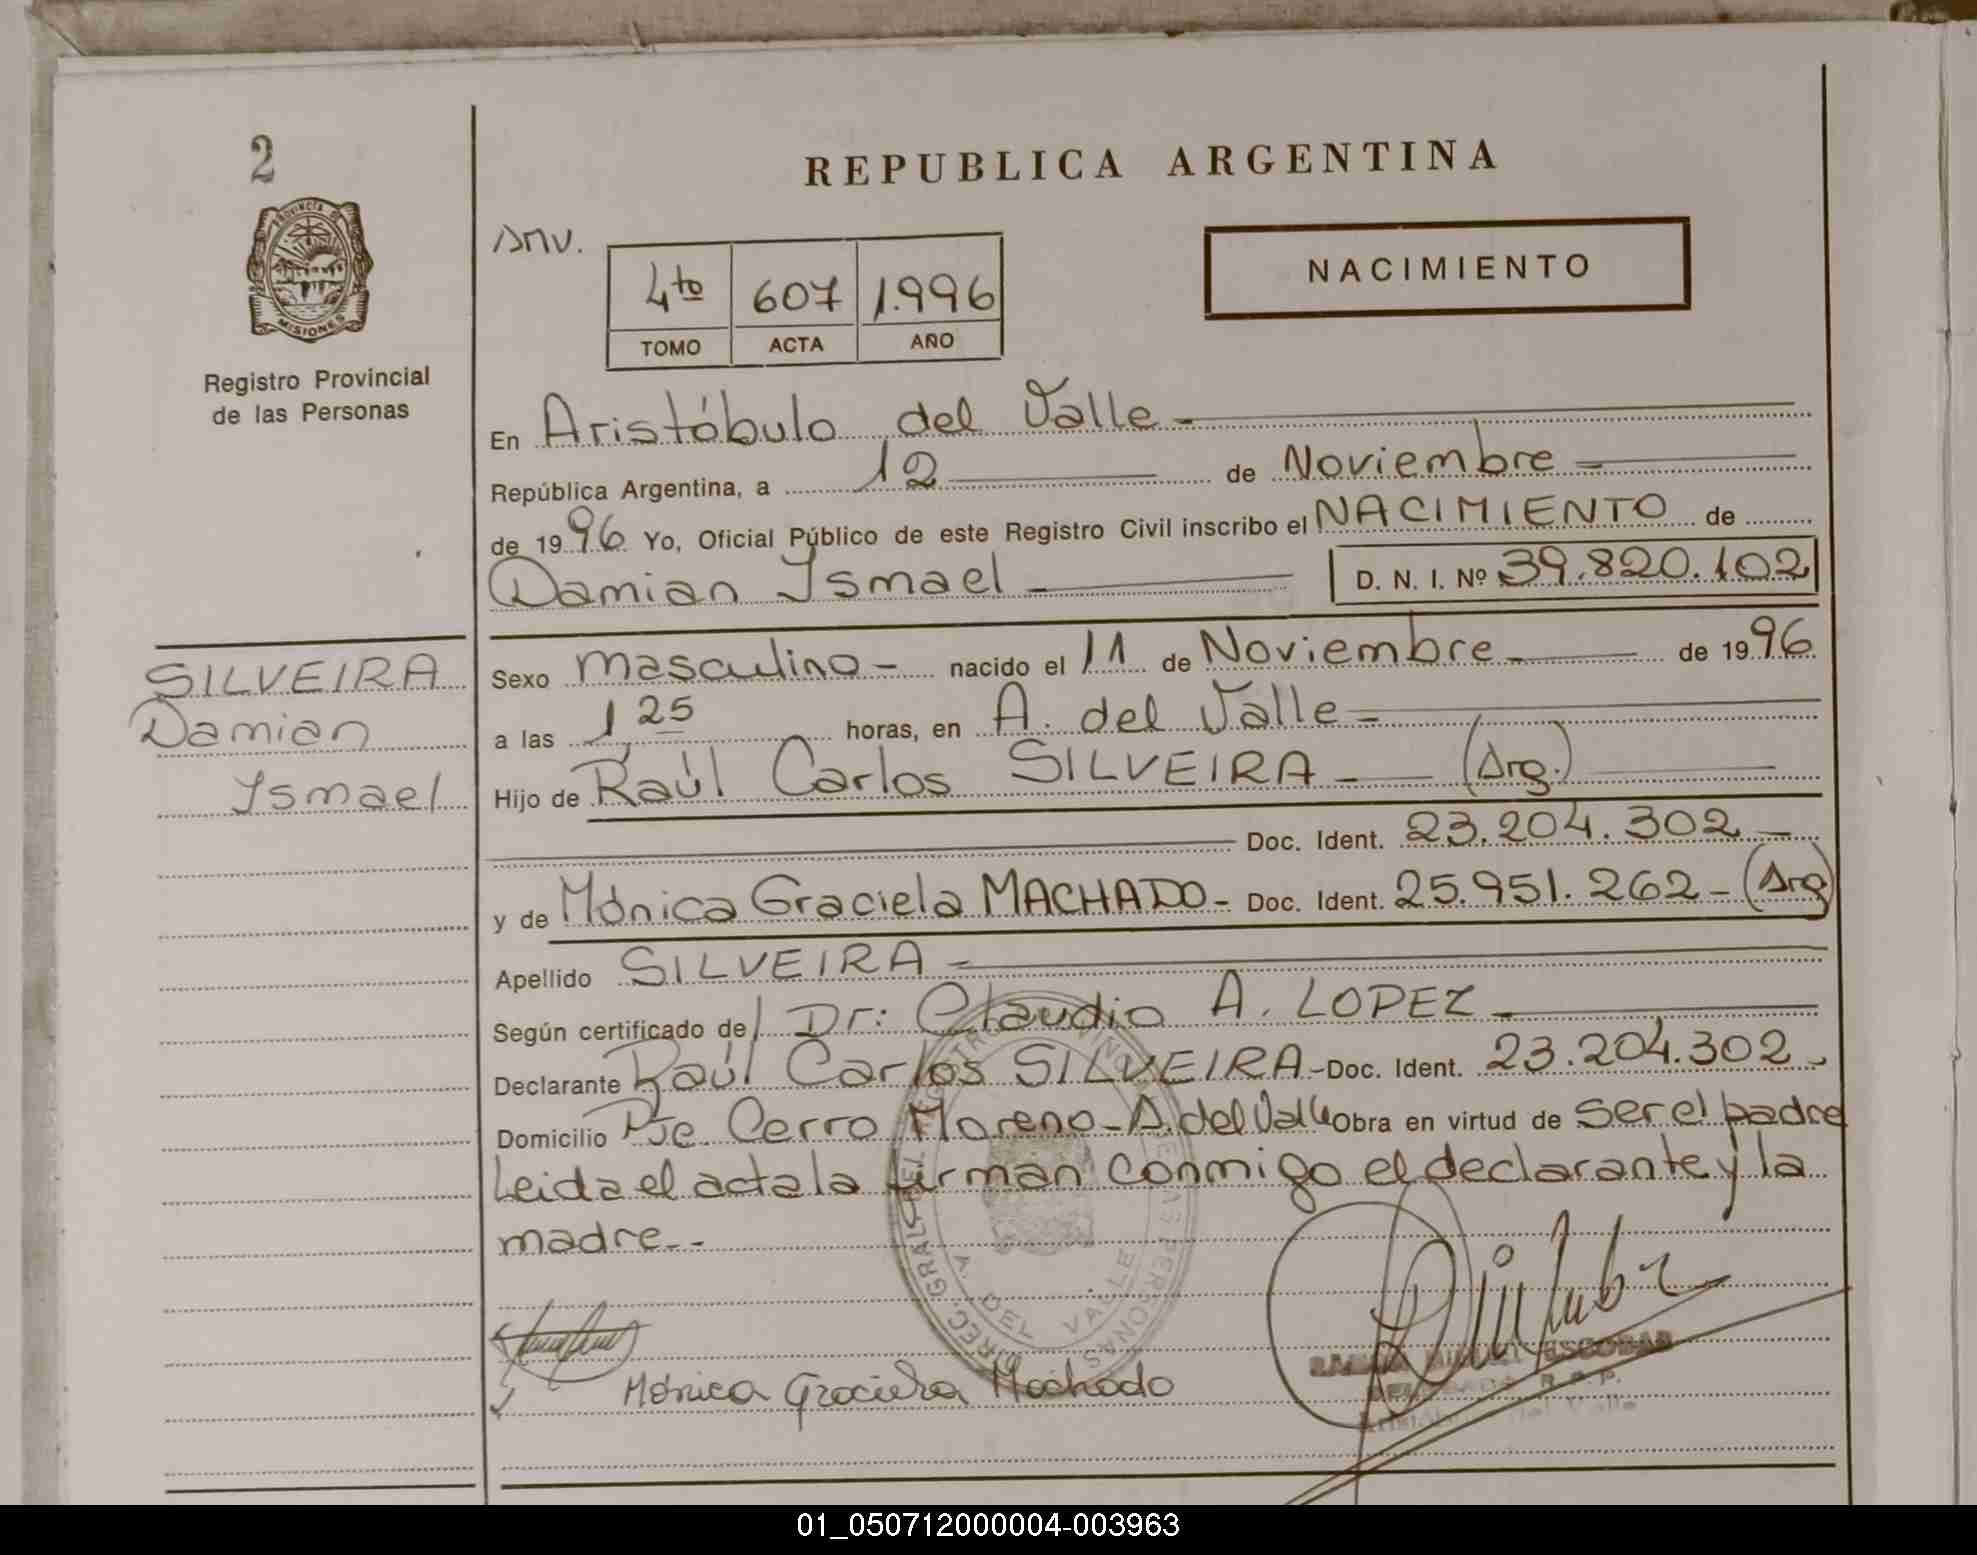 2
PROVINCIA DE
MISIONES
Registro Provincial
de las Personas
REPUBLICA ARGENTINA
4to 607 1.996
TOMO ACTA AÑO
NACIMIENTO
En Aristóbulo del Valle
República Argentina, a 12 de Noviembre
de 1996 Yo, Oficial Público de este Registro Civil inscribo el NACIMIENTO de
Damian Ismael D. N. I. Nº 39.820.102
SILVEIRA
Damian
Ismael
Sexo masculino nacido el 11 de Noviembre de 1996
a las 1 25 horas, en A. del Valle
Hijo de Raúl Carlos SILVEIRA (Arg.)
Doc. Ident. 23.204.302
y de Mónica Graciela MACHADO - Doc. Ident. 25.951.262 - (Arg)
Apellido SILVEIRA
Según certificado del Dr: Claudio A. LOPEZ
Declarante Raúl Carlos SILVEIRA - Doc. Ident. 23.204.302
Domicilio Pje. Cerro Moreno - A. del Valle Obra en virtud de ser el padre
Leida el acta la firman conmigo el declarante y la
madre
A. DEL VALLE
Mónica Graciela Machado
ESCOBAR
01_050712000004-003963